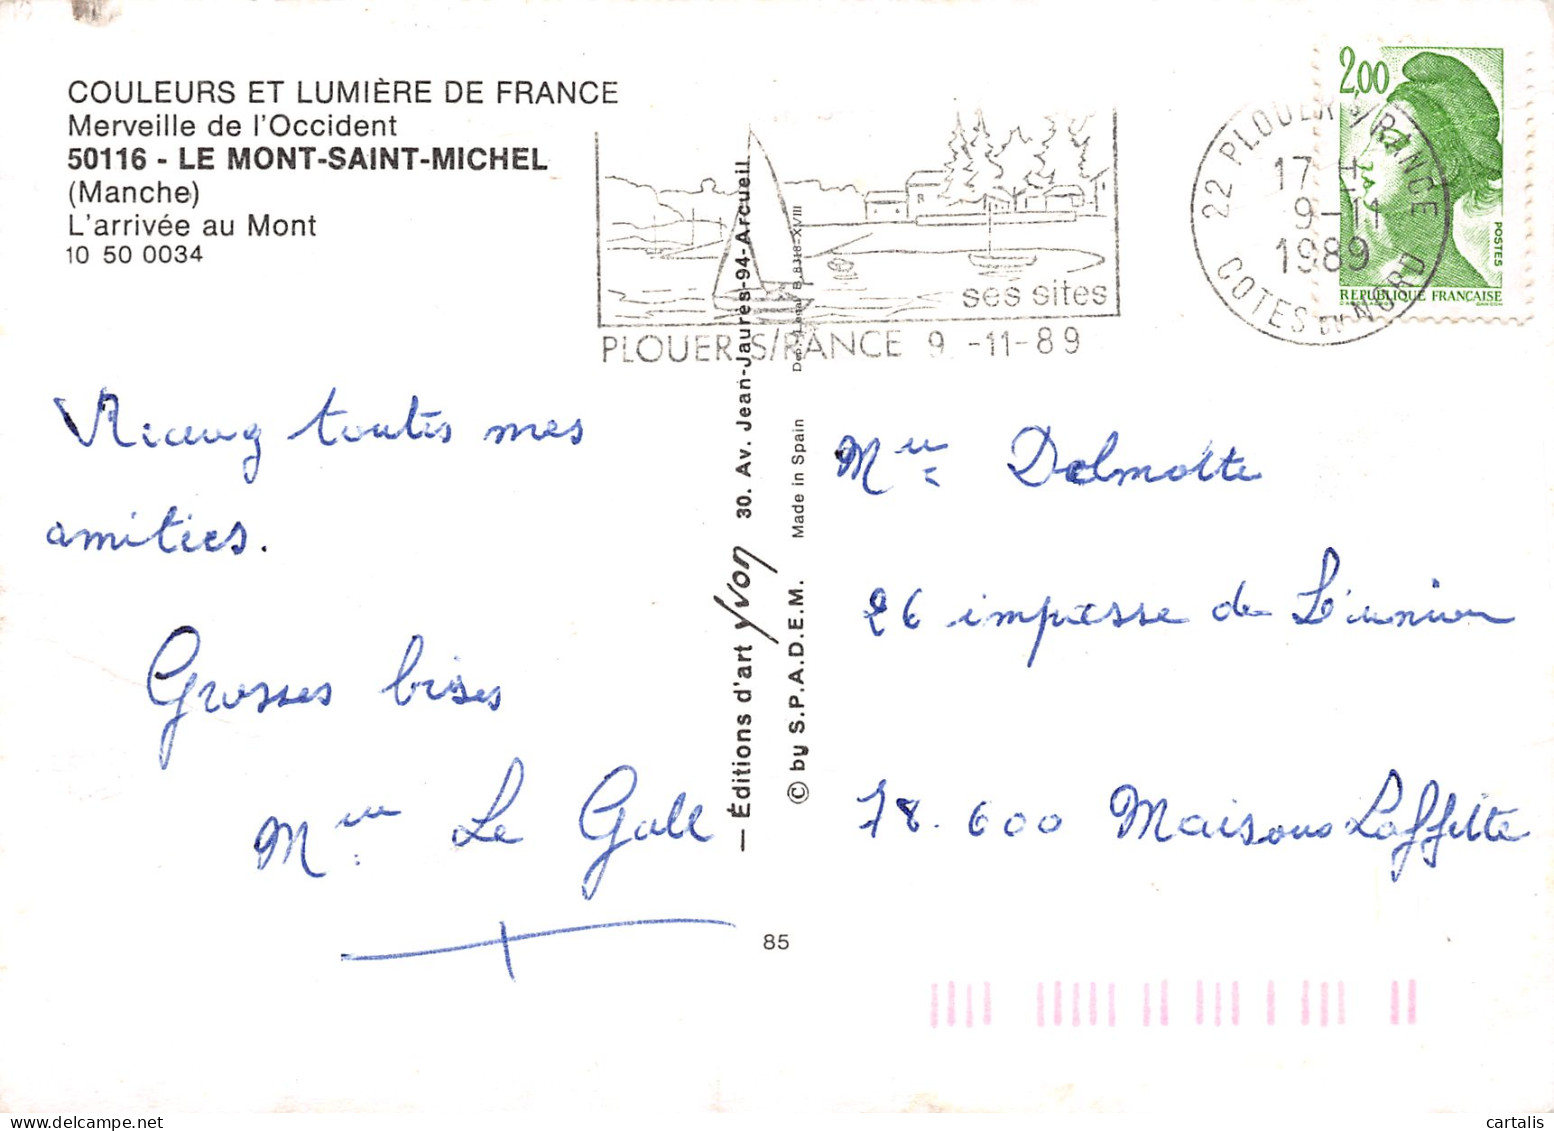 COULEURS ET LUMIÈRE DE FRANCE
Merveille de l'Occident
50116 - LE MONT-SAINT-MICHEL
(Manche)
L'arrivée au Mont
10 50 0034
ses sites
PLOUER S/RANCE 9 -11-89
22 PLOUER S/RANCE
17 H
9-11
1989
COTES DU NORD
2,00
POSTES
REPUBLIQUE FRANÇAISE
toutes mes
amitiés.
Grosses bises
Mme Le Gall
— Éditions d'art Yvon 30. Av. Jean-Jaures-94-Arcueil
© by S.P.A.D.E.M. Made in Spain
85
Melle Delmotte
26 impasse de L'union
78.600 Maisons Laffitte
cartalis